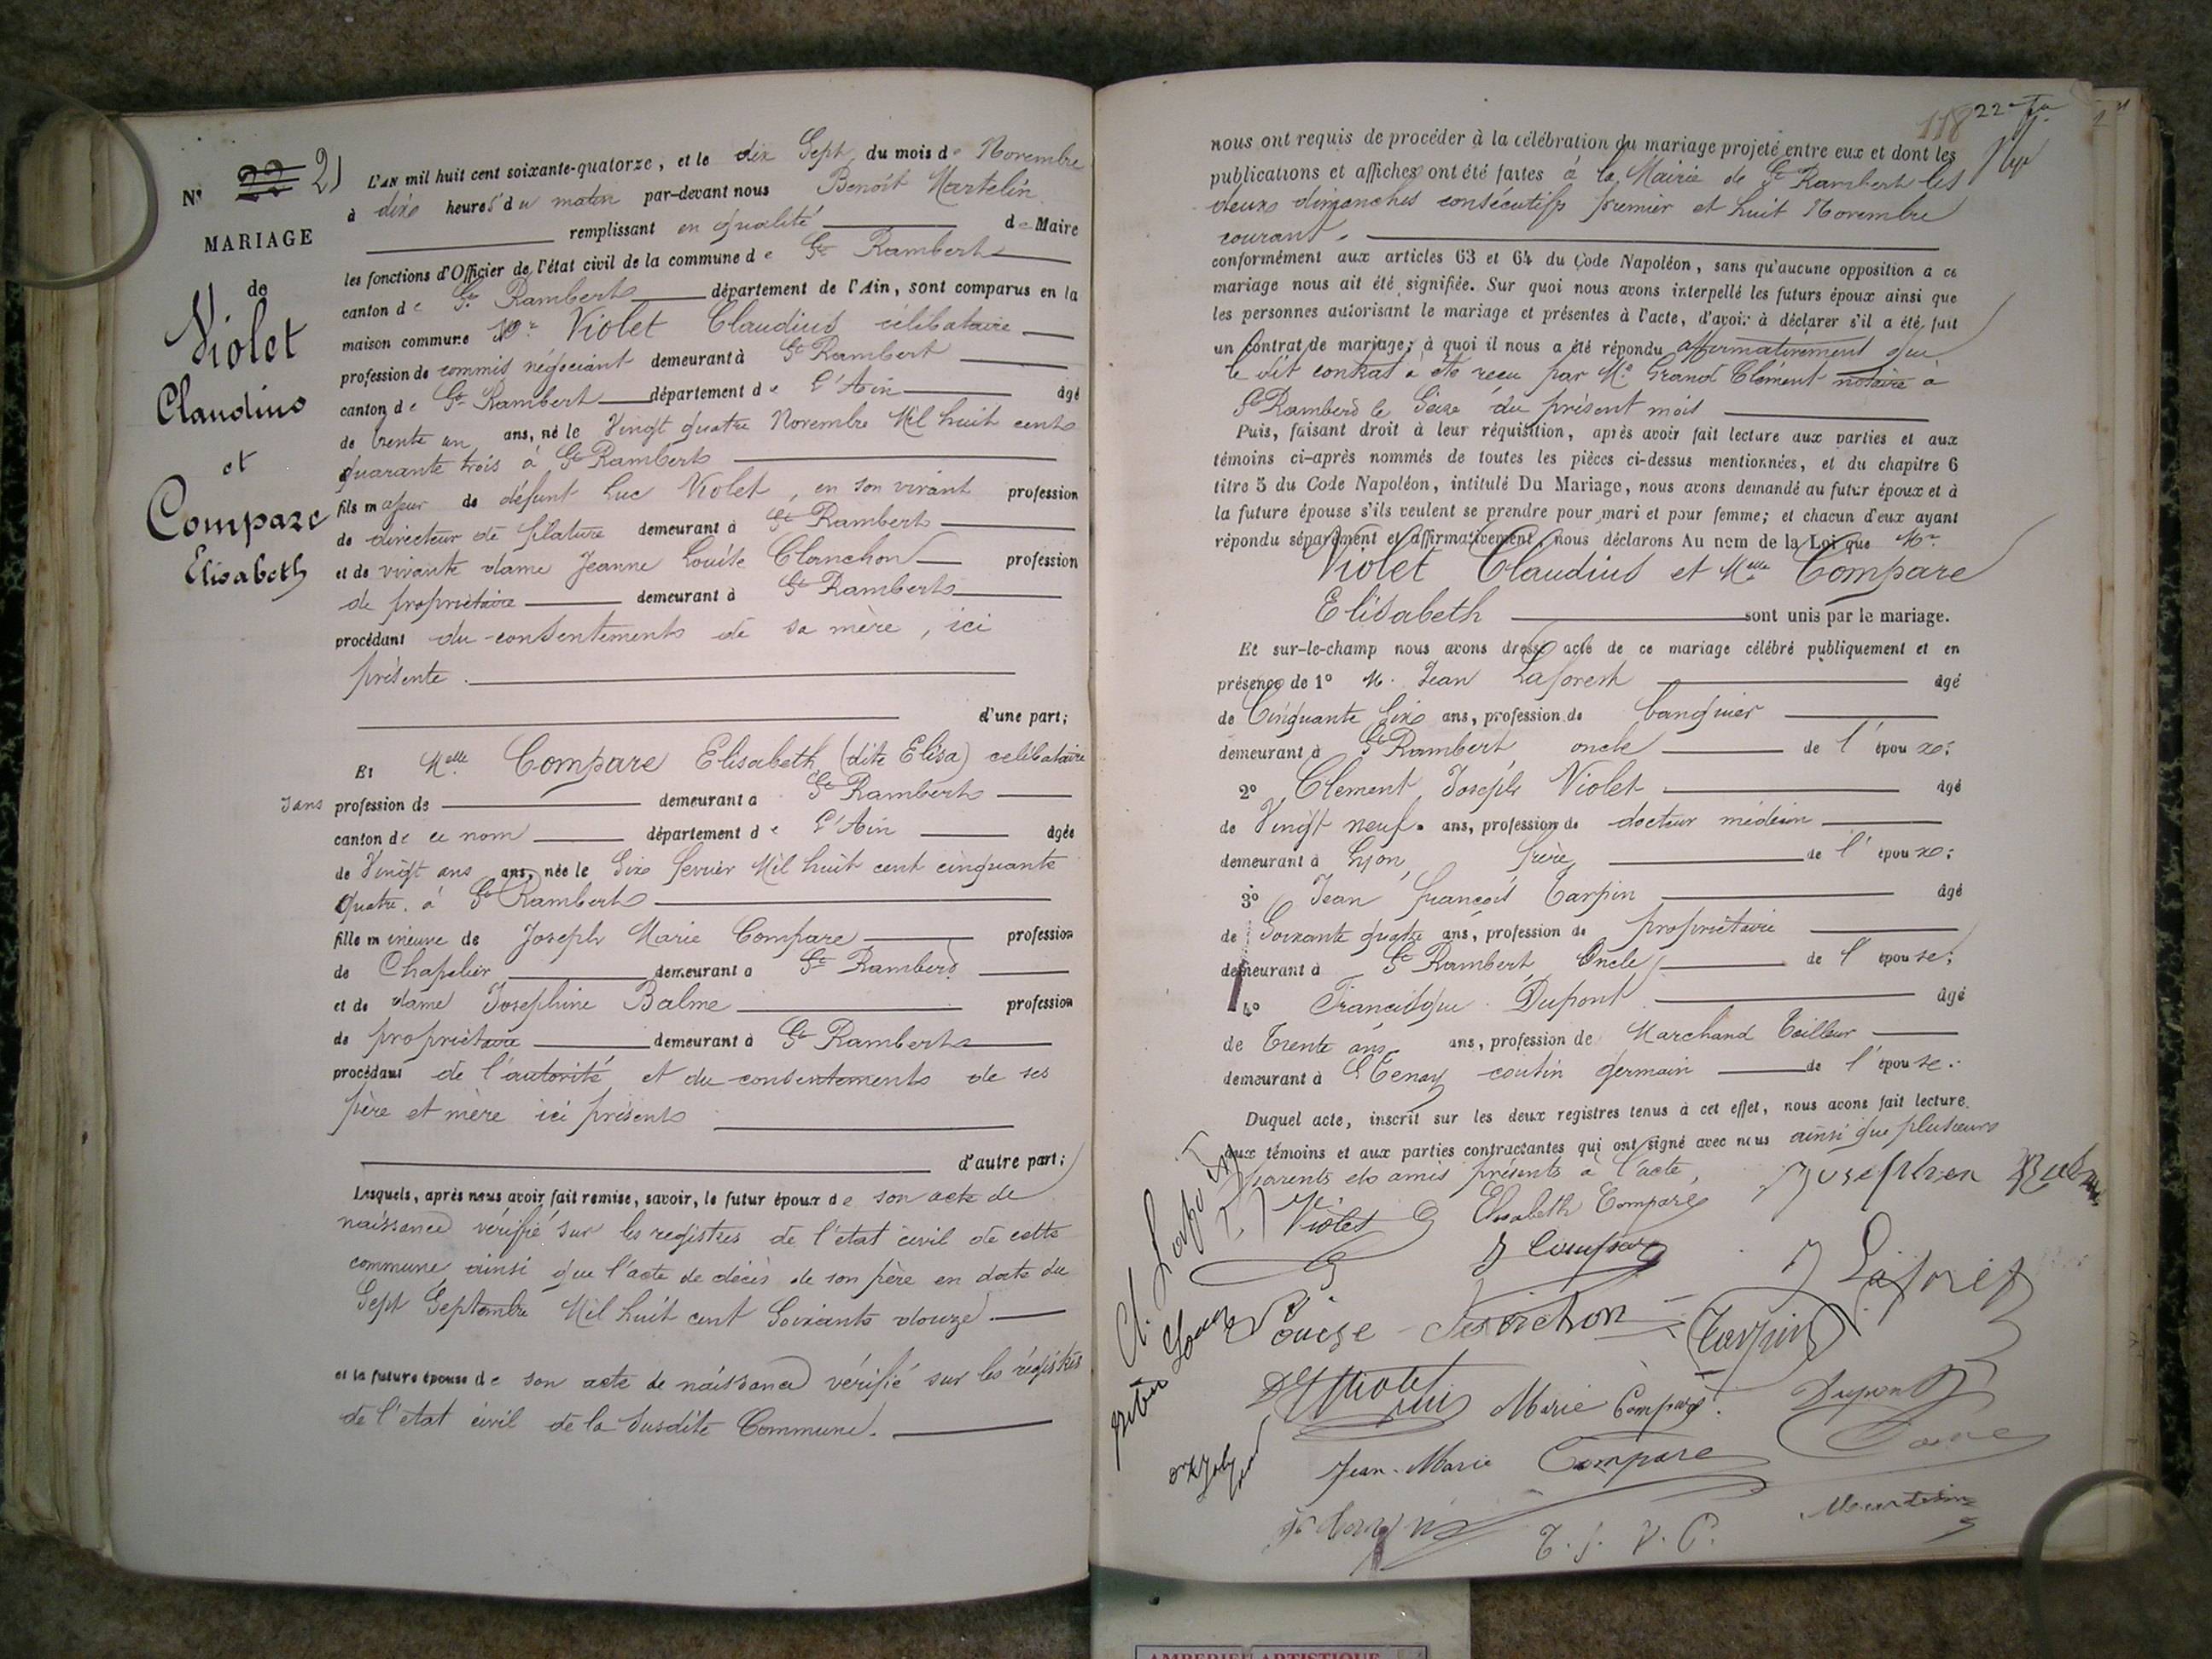 N° 22 21
MARIAGE
de
Violet
Claudius
et
Compare
Elisabeth
L'AN mil huit cent soixante-quatorze, et le dix Sept du mois de Novembre
à dix heures du matin par-devant nous Benoît Martelin
remplissant en qualité de Maire
les fonctions d'Officier de l'état civil de la commune de St Rambert
canton de St Rambert département de l'Ain, sont comparus en la
maison commune Mr Violet Claudius célibataire
profession de commis négociant demeurant à St Rambert
canton de St Rambert département de L'Ain âgé
de trente un ans, né le Vingt quatre Novembre Mil huit cent
quarante trois à St Rambert
fils majeur de défunt Luc Violet, en son vivant profession
de directeur de filature demeurant à St Rambert
et de vivante dame Jeanne Louise Clanchon profession
de propriétaire demeurant à St Rambert
procédant du consentement de sa mère, ici
présente.
d'une part;
Et Melle Compare Elisabeth (dite Elisa) célibataire
sans profession de demeurant à St Rambert
canton de ce nom département de L'Ain âgée
de Vingt ans ans, née le Six fevrier Mil huit cent cinquante
quatre. à St Rambert
fille mineure de Joseph Marie Compare profession
de Chapelier demeurant à St Rambert
et de dame Josephine Balme profession
de propriétaire demeurant à St Rambert
procédant de l'autorité et du consentement de ses
père et mère ici présents
d'autre part;
Lesquels, après nous avoir fait remise, savoir, le futur époux de son acte de
naissance vérifié sur les registres de l'etat civil de cette
commune ainsi que l'acte de décès de son père en date du
Sept Septembre Mil huit cent Soixante douze.
et la future épouse de son acte de naissance vérifié sur les régistres
de l'etat civil de la susdite Commune.
118 22e
nous ont requis de procéder à la célébration du mariage projeté entre eux et dont les
publications et affiches ont été faites à la Mairie de St Rambert les
deux dimanches consécutifs premier et huit Novembre
courant.
conformément aux articles 63 et 64 du Code Napoléon, sans qu'aucune opposition à ce
mariage nous ait été signifiée. Sur quoi nous avons interpellé les futurs époux ainsi que
les personnes autorisant le mariage et présentes à l'acte, d'avoir à déclarer s'il a été fait
un contrat de mariage; à quoi il nous a été répondu affirmativement que
le dit contrat a été recu par Me Grand Clément notaire à
St Rambert le Seize du présent mois
Puis, faisant droit à leur réquisition, après avoir fait lecture aux parties et aux
témoins ci-après nommés de toutes les pièces ci-dessus mentionnées, et du chapitre 6
titre 5 du Code Napoléon, intitulé Du Mariage, nous avons demandé au futur époux et à
la future épouse s'ils veulent se prendre pour mari et pour femme; et chacun d'eux ayant
répondu séparément et affirmativement, nous déclarons Au nom de la Loi que Mr
Violet Claudius et Melle Compare
Elisabeth sont unis par le mariage.
Et sur-le-champ nous avons dressé acte de ce mariage célébré publiquement et en
présence de 1° M. Jean Laforest âgé
de Cinquante Six ans, profession de banquier
demeurant à St Rambert, oncle de l'époux;
2° Clement Joseph Violet âgé
de Vingt neuf. ans, profession de docteur médecin
demeurant à Lyon, frère de l'époux;
3° Jean françois Tarpin âgé
de Soixante quatre ans, profession de propriétaire
demeurant à St Rambert Oncle de l'épouse;
4° Francisque Dupont âgé
de Trente ans ans, profession de Marchand Tailleur
demeurant à Tenay cousin germain de l'épouse.
Duquel acte, inscrit sur les deux registres tenus à cet effet, nous avons fait lecture
aux témoins et aux parties contractantes qui ont signé avec nous ainsi que plusieurs
parents et amis présents à l'acte,
Violet Elisabeth Compare
J Compare
J Laforest
Louise Tarpin
Violet Marie Compare Dupont
Jean-Marie Compare
Martelin
T. S. V. P.
AMBERIEU ARTISTIQUE